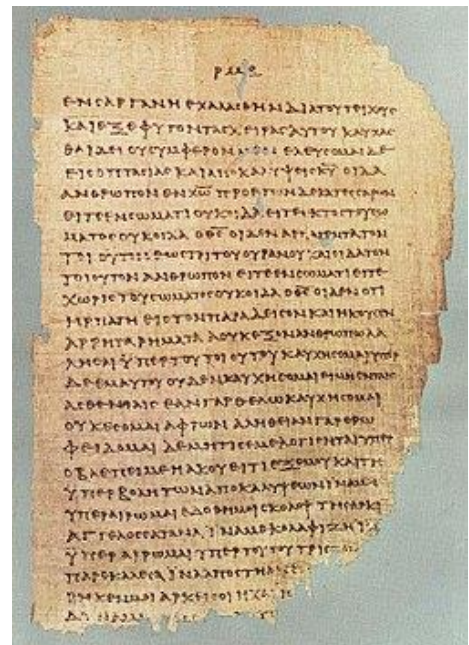 ρμϛ
ΕΝϹΑΡΓΑΝΗΕΧΑΛΑϹΘΗΝΔΙΑΤΟΥΤΕΙΧΟΥϹ
ΚΑΙΕΞΕΦΥΓΟΝΤΑϹΧΕΙΡΑϹΑΥΤΟΥΚΑΥΧΑϹ
ΘΑΙΔΕΙΟΥϹΥΜΦΕΡΟΝΕΛΕΥϹΟΜΑΙΔΕ
ΕΙϹΟΠΤΑϹΙΑϹΚΑΙΑΠΟΚΑΛΥΨΕΙϹΚ̅Υ̅ΟΙΔΑ
ΑΝΘΡΩΠΟΝΕΝΧ̅Ω̅ΠΡΟΕΤΩΝΔΕΚΑΤΕϹϹΑΡΩΝ
ΕΙΤΕΕΝϹΩΜΑΤΙΟΥΚΟΙΔΑΕΙΤΕΕΚΤΟϹΤΟΥϹΩ
ΜΑΤΟϹΟΥΚΟΙΔΑΟΘ̅Ϲ̅ΟΙΔΕΝΑΡΠΑΓΕΝΤΑΤΟΝ
ΤΟΙΟΥΤΟΝΕΩϹΤΡΙΤΟΥΟΥΡΑΝΟΥΚΑΙΟΙΔΑΤΟΝ
ΤΟΙΟΥΤΟΝΑΝΘΡΩΠΟΝΕΙΤΕΕΝϹΩΜΑΤΙΕΙΤΕ
ΧΩΡΙϹΤΟΥϹΩΜΑΤΟϹΟΥΚΟΙΔΑΟΘ̅Ϲ̅ΟΙΔΕΝΟΤΙ
ΗΡΠΑΓΗΕΙϹΤΟΝΠΑΡΑΔΕΙϹΟΝΚΑΙΗΚΟΥϹΕΝ
ΑΡΡΗΤΑΡΗΜΑΤΑΑΟΥΚΕΞΟΝΑΝΘΡΩΠΩΛΑ
ΛΗϹΑΙΫΠΕΡΤΟΥΤΟΙΟΥΤΟΥΚΑΥΧΗϹΟΜΑΙΥΠΕΡ
ΔΕΕΜΑΥΤΟΥΟΥΔΕΝΚΑΥΧΗϹΟΜΑΙΕΙΜΗΕΝΤΑΙϹ
ΑϹΘΕΝΕΙΑΙϹΕΑΝΓΑΡΘΕΛΩΚΑΥΧΗϹΟΜΑΙ
ΟΥΚΕϹΟΜΑΙΑΦΡΩΝΑΛΗΘΕΙΑΝΓΑΡΕΡΩ
ΦΕΙΔΟΜΑΙΔΕΜΗΤΙϹΕΜΕΛΟΓΙϹΗΤΑΙΥΠΕΡ
ΟΒΛΕΠΕΙΜΕΗΑΚΟΥΕΙΤΙΕΞΕΜΟΥΚΑΙΤΗ
ΫΠΕΡΒΟΛΗΤΩΝΑΠΟΚΑΛΥΨΕΩΝΙΝΑΜΗ
ΥΠΕΡΑΙΡΩΜΑΙΕΔΟΘΗΜΟΙϹΚΟΛΟΨΤΗϹΑΡΚΙ
ΑΓΓΕΛΟϹϹΑΤΑΝΑΪΝΑΜΕΚΟΛΑΦΙΖΗΪΝ
ΫΠΕΡΑΙΡΩΜΑΙΥΠΕΡΤΟΥΤΟΥΤΡΙϹ
ΠΑΡΕΚΑΛΕϹΑΪΝΑΑΠΟϹΤΗΑΠ
ΡΗΚΕΝΜΟΙΑΡΚΕΙϹΟΙΗΧΑΡΙϹ